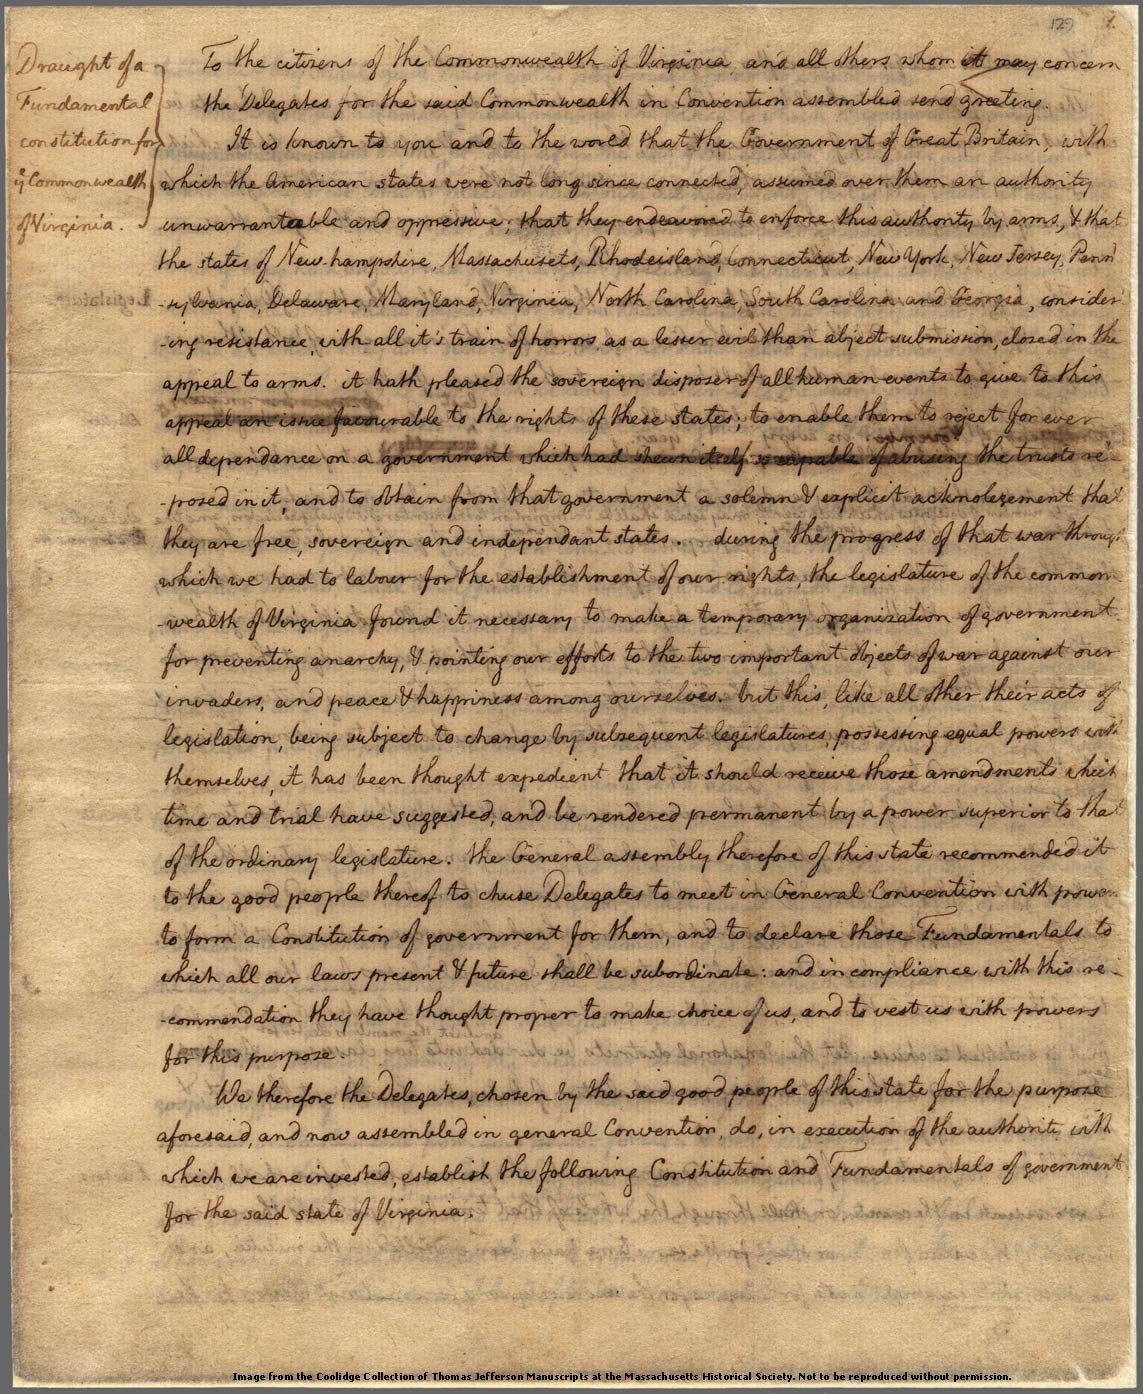 129 1.
Draught of a
Fundamental
constitution for
ye Commonwealth
of Virginia.
To the citizens of the Commonwealth of Virginia, and all others whom it may concern
the Delegates for the said Commonwealth in Convention assembled send greeting.
It is known to you and to the world that the Government of Great Britain, with
which the American states were not long since connected, assumed over them an authority
unwarrantable and oppressive; that they endeavored to enforce this authority by arms, & that
the states of New-hampshire, Massachusets, Rhodeisland, Connecticut, New York, New Jersey, Penn
-sylvania, Delaware, Maryland, Virginia, North Carolina, South Carolina and Georgia, consider
-ing resistance, with all it's train of horrors, as a lesser evil than abject submission, closed in the
appeal to arms. it hath pleased the sovereign disposer of all human events to give to this
appeal an issue favourable to the rights of these states; to enable them to reject for ever
all dependance on a government which had shewn itself so capable of abusing the trusts re-
-posed in it, and to obtain from that government a solemn & explicit acknolegement that
they are free, sovereign and independant states. during the progress of that war through
which we had to labour for the establishment of our rights, the legislature of the common-
-wealth of Virginia found it necessary to make a temporary organization of government
for preventing anarchy, & pointing our efforts to the two important objects of war against our
invaders, and peace & happiness among ourselves. but this, like all other their acts of
legislation, being subject to change by subsequent legislatures, possessing equal powers with
themselves, it has been thought expedient that it should receive those amendments which
time and trial have suggested, and be rendered permanent by a power superior to that
of the ordinary legislature. the General assembly therefore of this state recommended it
to the good people thereof to chuse Delegates to meet in General Convention with powers
to form a Constitution of government for them, and to declare those Fundamentals to
which all our laws present & future shall be subordinate: and in compliance with this re-
-commendation they have thought proper to make choice of us, and to vest us with powers
for this purpose.
We therefore the Delegates, chosen by the said good people of this state for the purpose
aforesaid, and now assembled in general Convention, do, in execution of the authority with
which we are invested, establish the following Constitution and Fundamentals of government
for the said state of Virginia.
Image from the Coolidge Collection of Thomas Jefferson Manuscripts at the Massachusetts Historical Society. Not to be reproduced without permission.